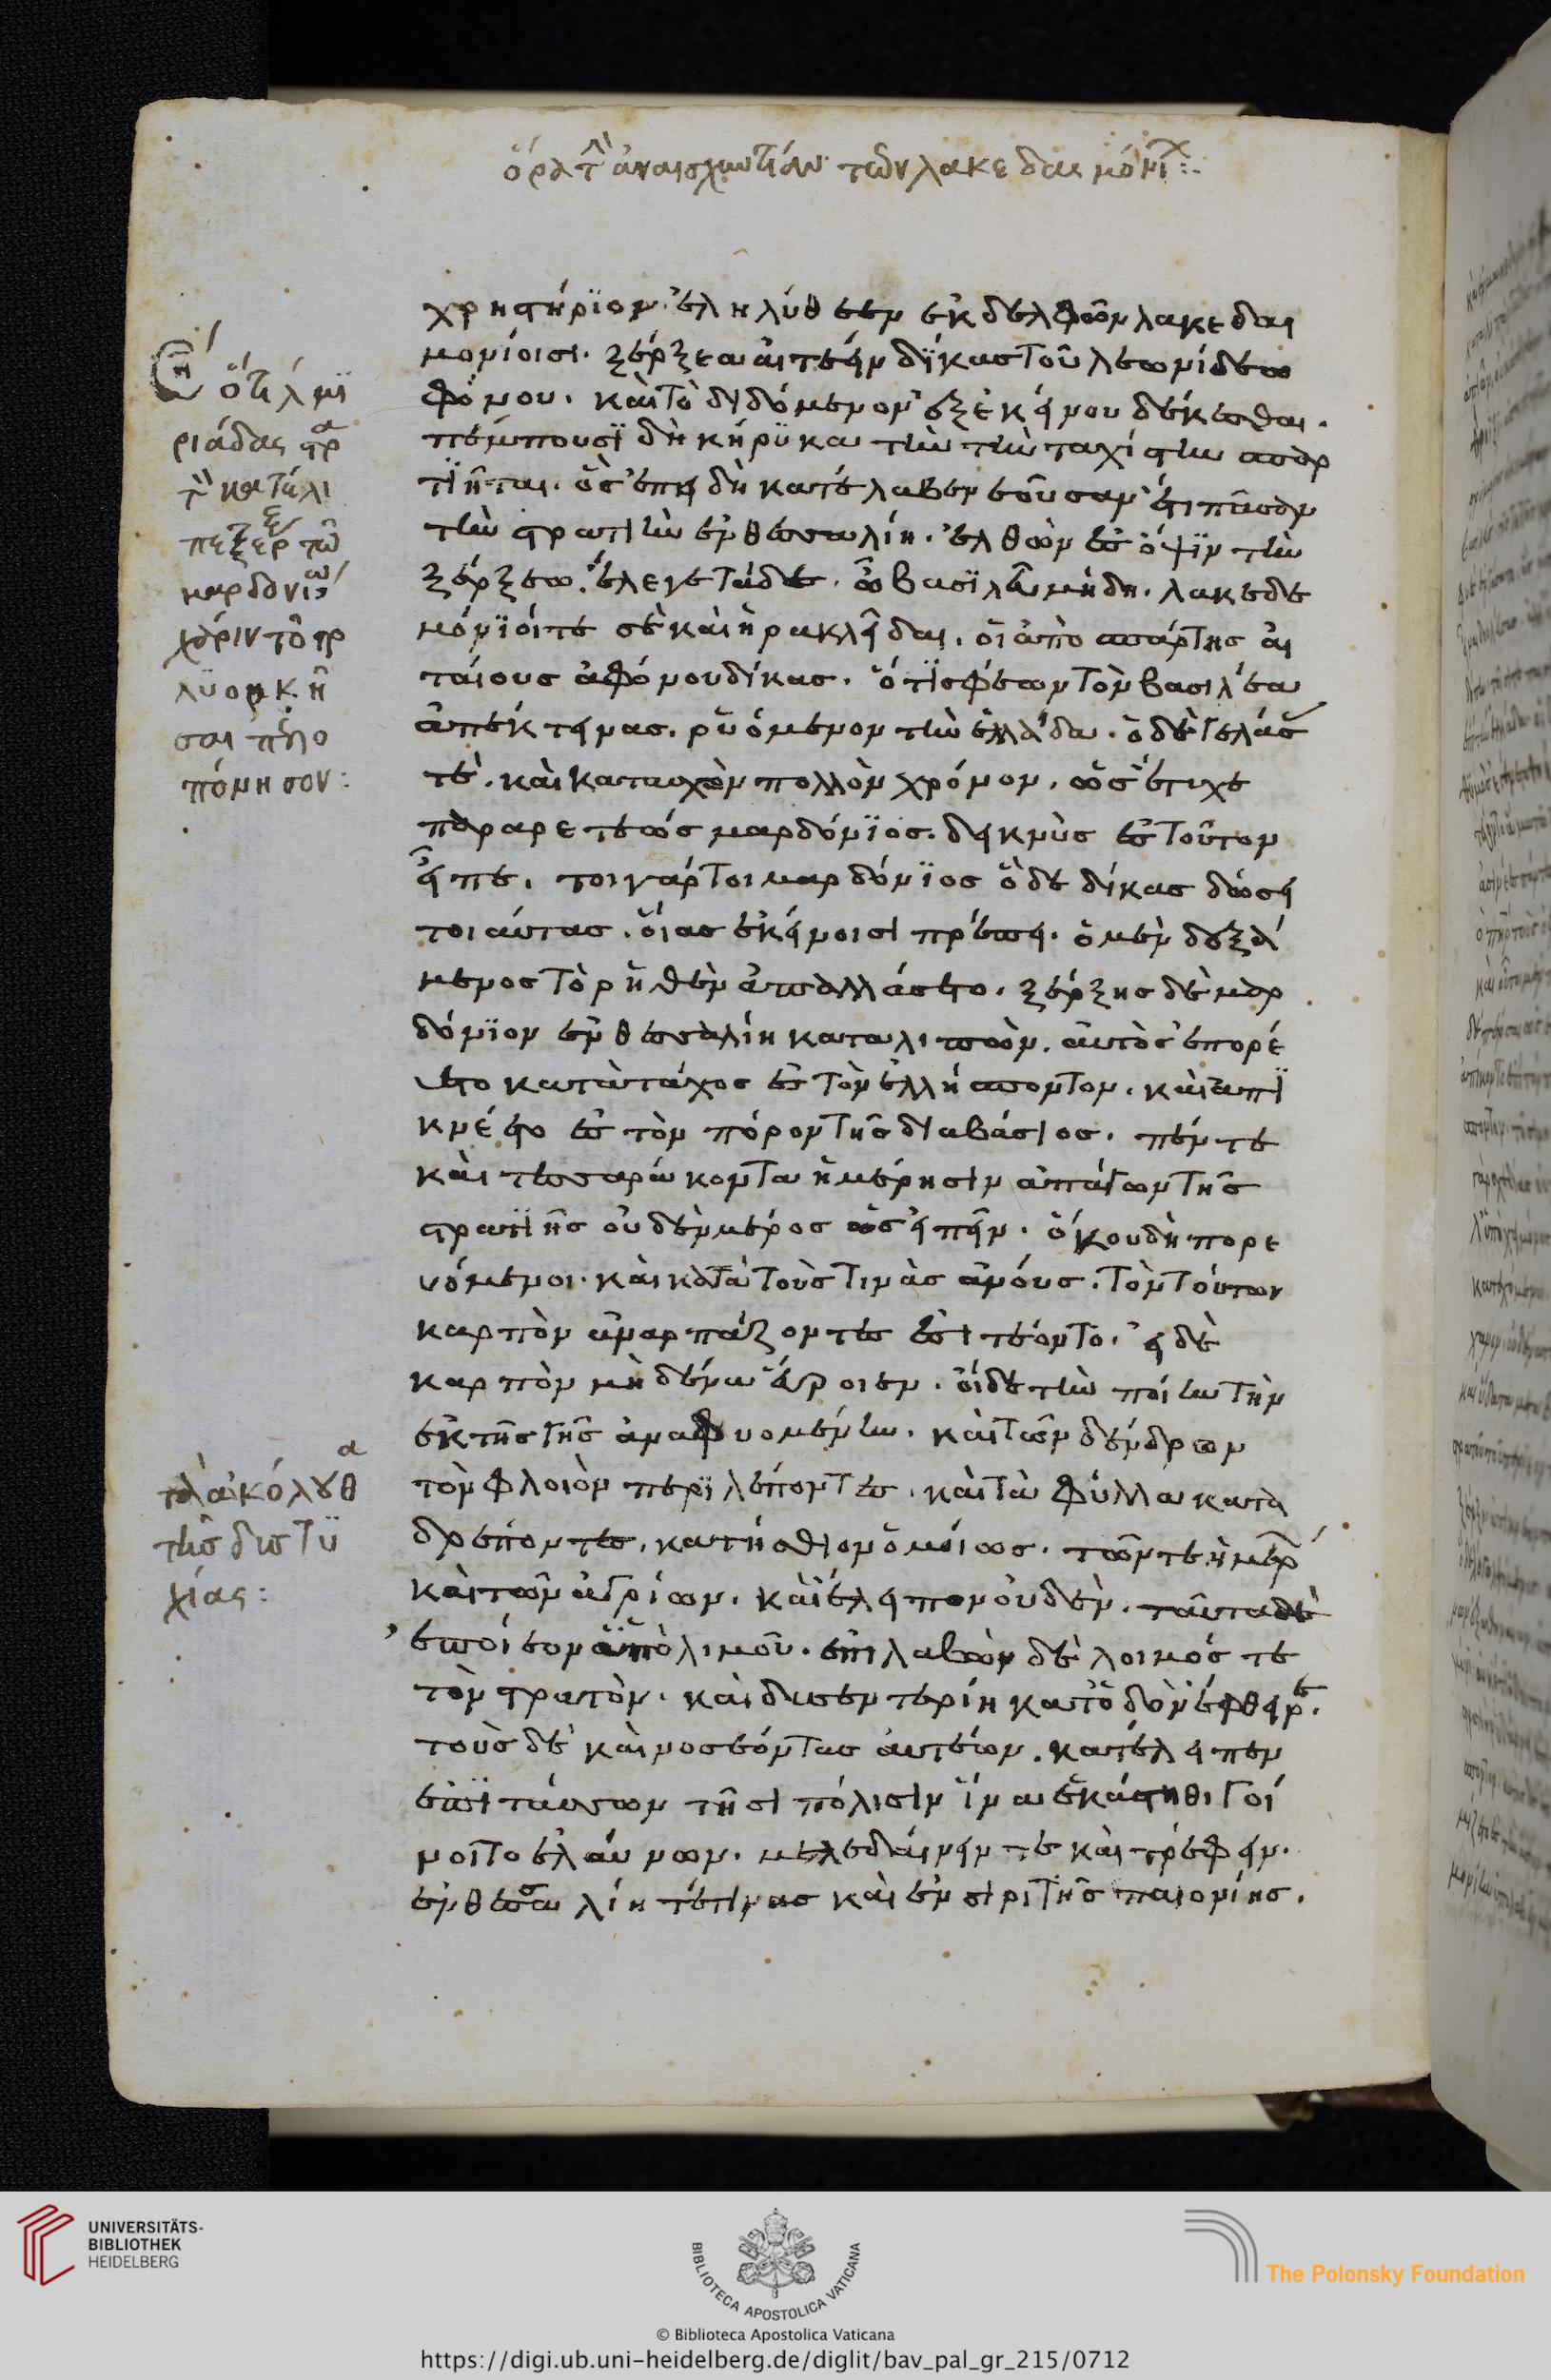 ὅρα τὴν ἀναισχυντίαν τῶν λακεδαιμονί:
χρηστήριον ἐληλύθεεν ἐκ δελφῶν λακεδαι
μονίοισι. ξέρξεα αἰτέειν δίκας τοῦ λεωνίδεω
φόνου. καὶ τὸ διδόμενον ἐξ ἐκείνου δέκεσθαι.
πέμπουσϊ δὴ κήρϋκα τὴν ταχίστην σπαρ
τϊῆται. ὃς ἐπειδὴ κατέλαβεν ἐοῦσαν ἔτι πᾶσαν
τὴν στρατιὴν ἐν θεσσαλίη. ἐλθὼν ἐς ὄψϊν τὴν
ξέρξεω. ἔλεγε τάδε. ὦ βασϊλεῦ μήδη. λακεδε
μόνϊοί τε σὲ καὶ ἡρακλεῖδαι. οἱ ἀπὸ σπάρτης αἰ
τέουσ ἀφόνου δίκας. ὅτϊ σφέων τὸν βασιλέα
ἀπέκτεινας. ῥϋόμενον τὴν ἑλλάδα. ὁ δὲ γελάσ
τὲ. καὶ κατασχὼν πολλὸν χρόνον. ὥς ἔτυχε
παραρετεὼς μαρδόνϊος. δεικνὺς ἐς τοῦτον
εἶπε. τοιγάρ τοι μαρδόνϊος ὅδε δίκας δώσει
τοιαύτας. οἵας ἐκείνοισι πρέπει. ὁ μὲν δεξά
μενος τὸ ῥηθὲν ἀπαλλάσσετο. ξέρξης δὲ μαρ
δόνϊον ἐν θεσσαλίη καταλιπὼν. αὐτὸς ἐπορεύ
ετο κατὰ τάχος ἐς τὸν ἑλλήσποντον. καὶ ἀπϊ
κνέετο ἐς τὸν πόρον τῆς διαβάσιος. πέντε
καὶ τεσσαράκοντα ἡμέρησιν ἀπάγων τῆς
στρατϊῆς οὐδὲν μέρος ὡς εἰπεῖν. ὅκου δὴ πορε
υόμενοι. καὶ κατὰ τούς τινὰς ἀνους. τὸν τούτων
καρπὸν ἁναρπάζοντες ἐσιτέοντο. εἰ δὲ
καρπὸν μηδένα εὕροιεν. οἱ δὲ τὴν ποίην τὴν
ἐκ τῆς γῆς ἀναφυομένην. καὶ τῶν δένδρων
τὸν φλοιὸν περϊλέποντες. καὶ τὰ φύλλα κατα
δρέποντες. κατήσθιον ὁμοίως. τῶν τε ἡμέρ
καὶ τῶν ἀγρίων. καὶ ἔλειπον οὐδὲν. ταῦτα δὲ
ἐποίεον ὑπὸ λιμοῦ. ἐπιλαβὼν δὲ λοιμός τε
τὸν στρατὸν. καὶ δυσεντερίη κατ' ὁδὸν ἔφθειρε.
τοὺς δὲ καὶ νοσέοντας αὐτέων. κατέλειπεν
ἐπϊτάσσων τῆσι πόλισιν ἵνα ἑκάστηθι γοί
νοιτο ἐλαύνων. μελεδαίνειν τε καὶ τρέφειν.
ἐν θεσσαλίη τέ τινας καὶ ἐν σίρι τῆς παιονίης.
ὅτι λ μϋ
ριάδας στρ
τ κατάλι
πε ξέρ τῶ
μαρδονίω
χάριν τοῦ στρ
σαι πελο
πόννησον:
τὰ ἀκόλουθα
τῆς δυστϋ
χίας:
UNIVERSITÄTS-
BIBLIOTHEK
HEIDELBERG
BIBLIOTECA APOSTOLICA VATICANA
© Biblioteca Apostolica Vaticana
The Polonsky Foundation
https://digi.ub.uni-heidelberg.de/diglit/bav_pal_gr_215/0712